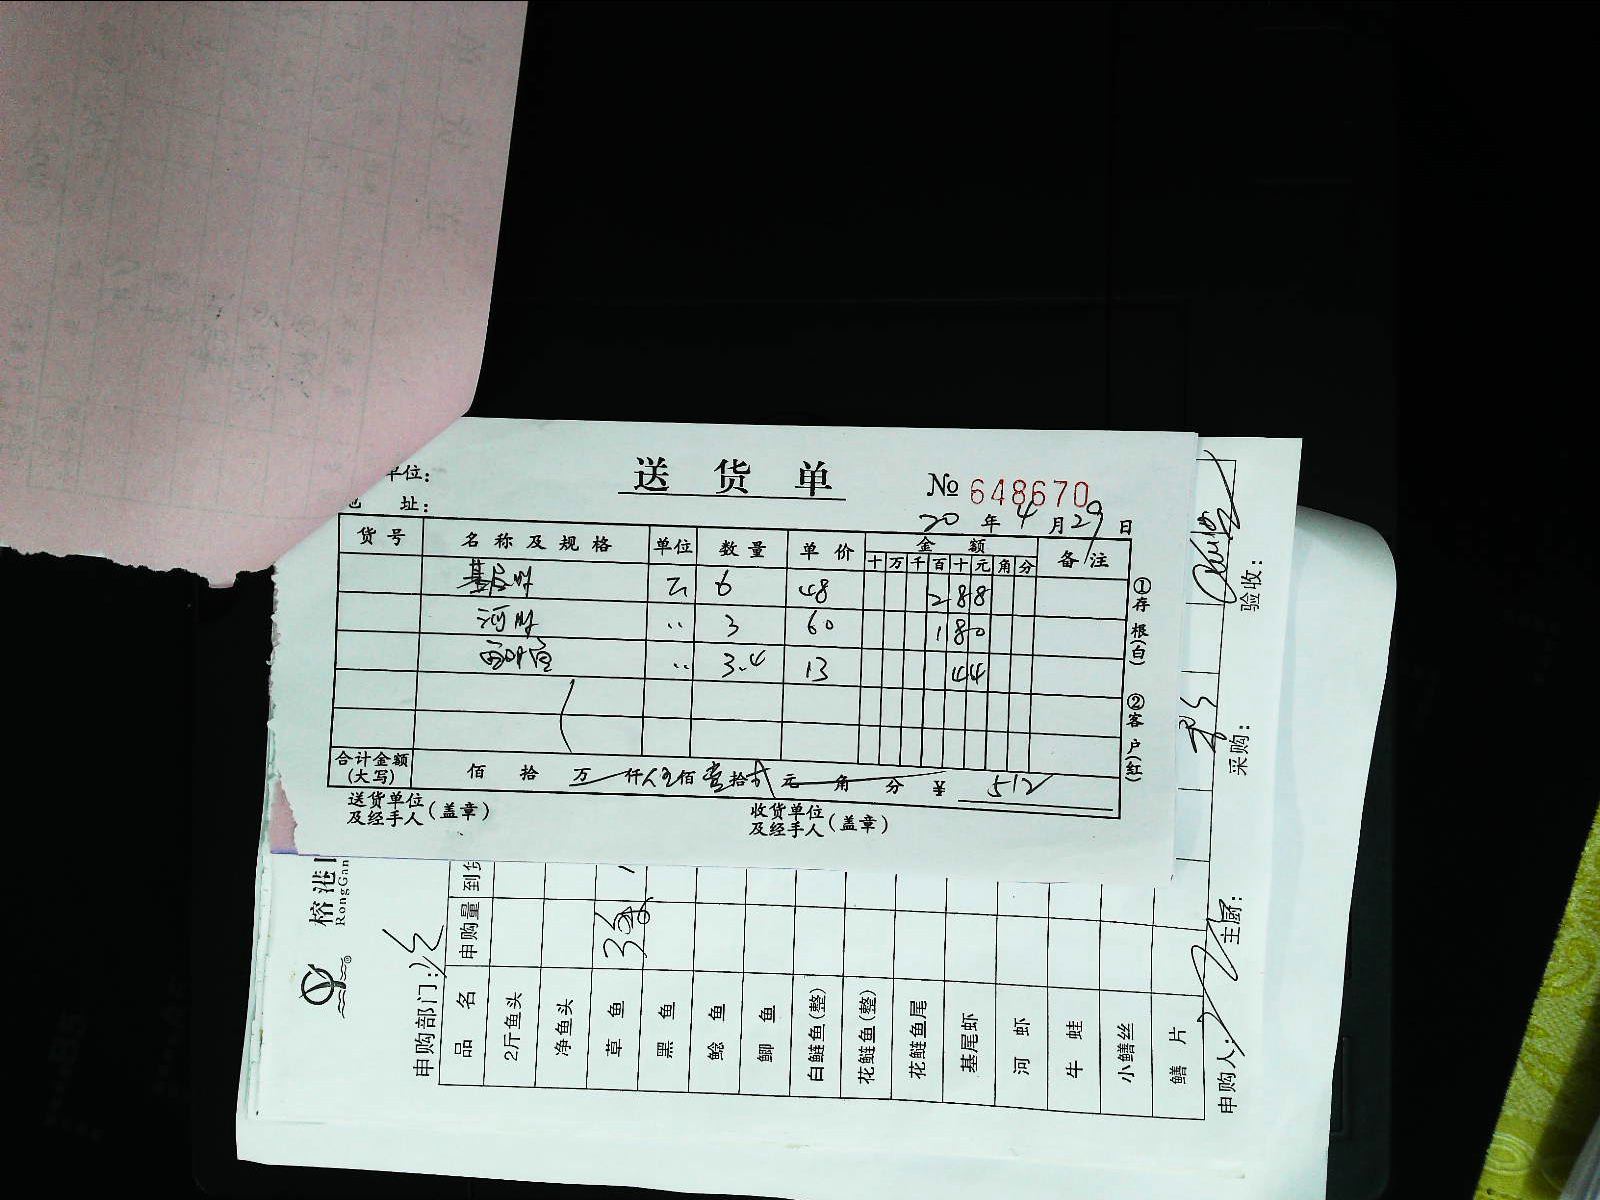 单位：
址：
送货单
No 648670
20 年 4 月 29 日
货号 名称及规格 单位 数量 单价 金额 备注
十 万 千 百 十 元 角 分
基尾虾 斤 6 48 288
河虾 〃 3 60 180
〃 3.4 13 44
合计金额(大写) 佰 拾 万 仟 五佰 壹拾 贰元 角 分 ¥ 512
送货单位及经手人(盖章) 收货单位及经手人(盖章)
①存根(白)
②客户(红)
榕港
RongGan
申购部门：
品名 申购量 到货
2斤鱼头
净鱼头
草鱼 35
黑鱼
鲶鱼
鲫鱼
白鲢鱼(整)
花鲢鱼(整)
花鲢鱼尾
基尾虾
河虾
牛蛙
小鳝丝
鳝片
申购人： 主厨： 采购： 验收：